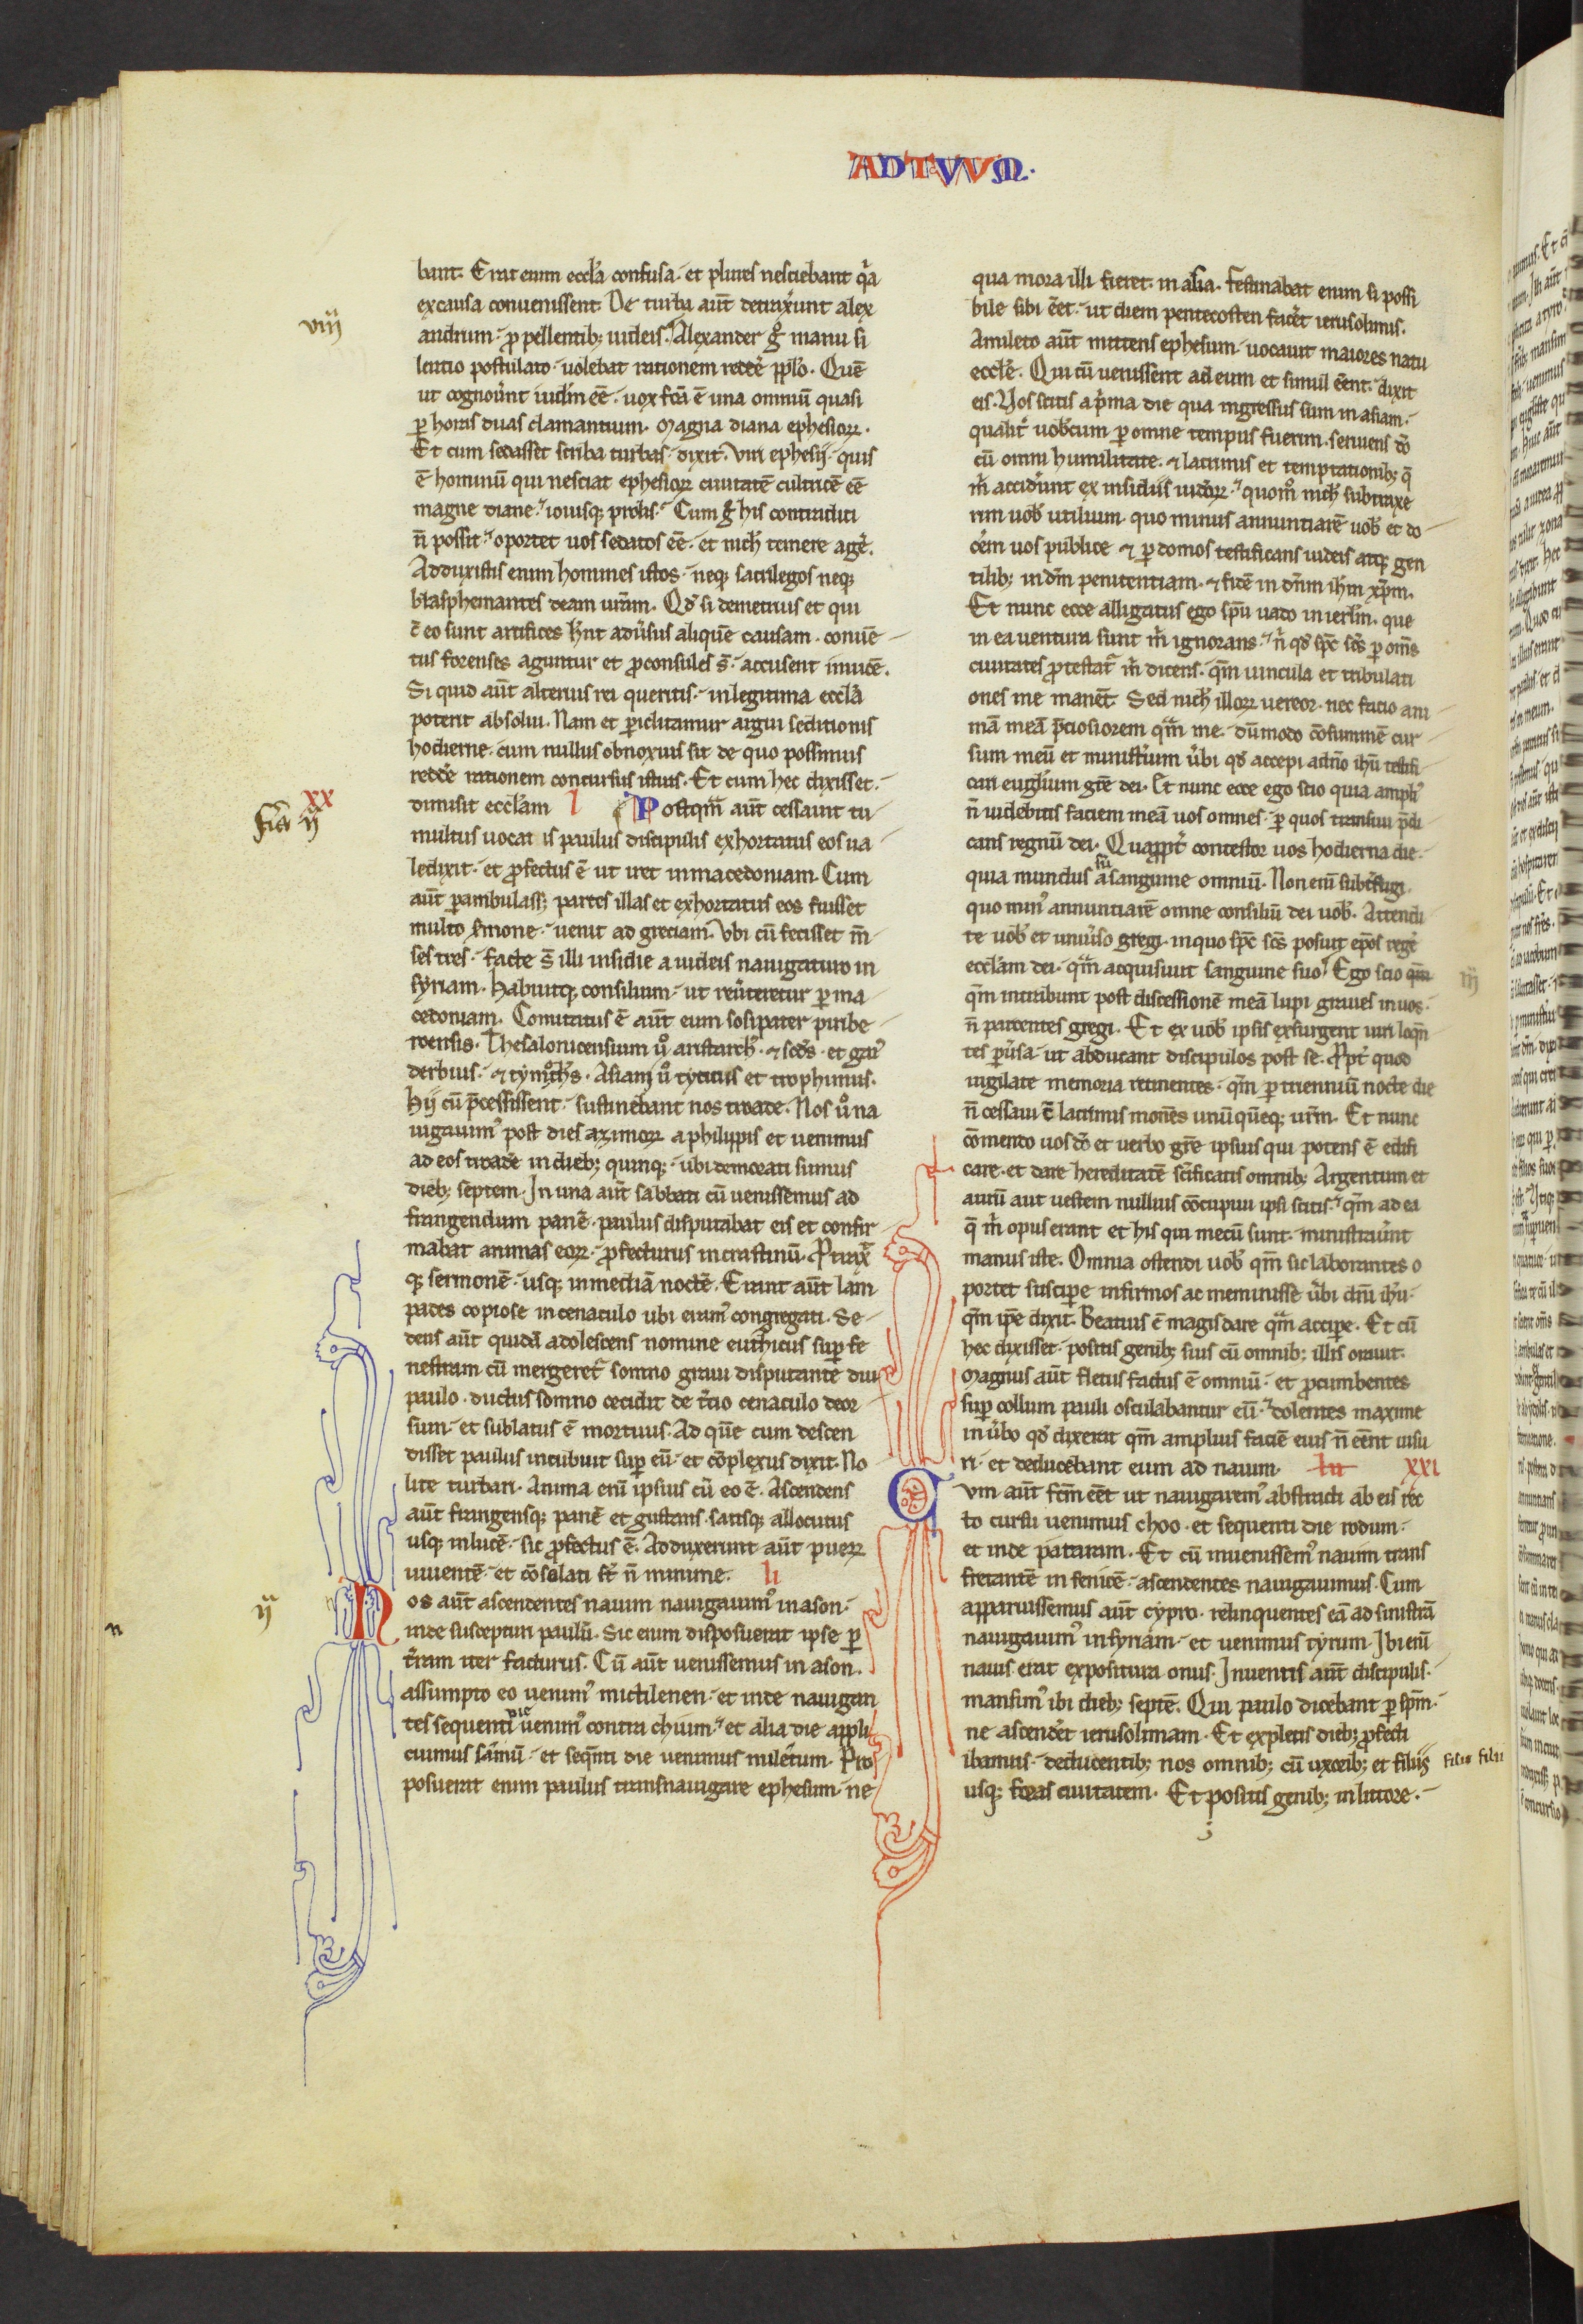 ADTVVM.
bant. Erat enim eccľa confusa. et plures nesciebant qᷓa
ex causa convenissent. De turba aut̄ detrax̓unt alex
viij
andrum. ꝓpellentib; iudeis. Alexander gͦ manu si
lentio postulato. uolebat rationem redde̓ pp̓lo. Quē
ut cognov̓int iudm̄ eē. uox fcā ē una omniū quasi
ꝑ horas duas clamantium. Magna diana ephesioꝝ.
Et cum sedasset scriba turbas. dixit. Viri ephesij. quis
ē hominū qui nesciat ephesioꝝ ciuitatē cultricē eē
magne diane. iouisq; prolis. Cum gͦ his contradici
n̄ possit. oportet uos sedatos eē. et nich̓ temere age̓.
Adduxistis enim homines istos. neq; sacrilegos neq;
blasphemantes deam urām. Qđ si demetrius et qui
c̄ eo sunt artifices hn̄t adu̓sus aliquē causam. conuē
tus forenses aguntur et ꝓconsules s̄. accusent inuicē.
Si quid aut̄ alterius rei queritis. in legitima eccľa
poterit absolui. Nam et ꝑiclitamur argui seditionis
hodierne. cum nullus obnoxius sit de quo possimus
redde̓ rationem concursus istius. Et cum hec dixisset.
xx
dimisit eccľam l Postqᷓm aut̄ cessauit tu
fia ij
multus uocatis paulus discipulis exhortatus eos ua
ledixit. et ꝓfectus ē ut iret in macedoniam. Cum
aut̄ ꝑambulass; partes illas et exhortatus eos fuisset
multo s̓mone. uenit ad greciam. Vbi cū fecisset m̄
ses tres. facte s̄ illi insidie a iudeis nauigaturo in
syriam. habuitq; consilium. ut reu̓teretur ꝑ ma
cedoniam. Comitatus ē aut̄ eum sosipater piribe
roensis. Thesalonicensium uͦ aristarch̓. ⁊ scđs. et gai᷒
derbius. ⁊ tymoͦths. Asiani uͦ tyticus et trophimus.
Hij cū p̄cessissent. sustinebant nos troade. Nos uͦ na
uigauim᷒ post dies azimoꝝ a philippis et uenimus
ad eos troadē in dieb; quinq;. ubi demorati sumus
dieb; septem. In una aut̄ sabbati cū uenissemus ad
frangendum panē. paulus disputabat eis et confir
mabat animas eoꝝ. ꝓfecturus in crastinū. Ptrax̓
q; sermonē. usq; in mediā noctē. Erant aut̄ lam
pades copiose in cenaculo ubi eram᷒ congregati. Se
dens aut̄ quidā adolescens nomine euthicus suꝑ fe
nestram. cū mergeret᷑ somno graui disputante diu
paulo. ductus somno cecidit de t̓cio cenaculo deor
sum. et sublatus ē mortuus. Ad quē cum descen
disset paulus incubuit suꝑ eū. et cōplexus dixit. No
lite turbari. Anima eni ipsius cū eo ē. Ascendens
aut̄ frangensq; panē et gustans. satisq; allocutus
usq; in lucē. sic ꝓfectus ē. Adduxerunt aut̄ pueꝝ
uiuentē. et cōsolati st̄ n̄ minime. li
ij
Nos aut̄ ascendentes nauim nauigauim᷒ in ason.
n
inde suscepturi paulū. Sic enim disposuerat ipse ꝑ
t̓ram iter facturus. Cū aut̄ uenissemus in ason.
assumpto eo uenim᷒ mitilenen. et inde nauigan
tes sequenti die uenim᷒ contra chium. et alia die appli
cuimus samū. et seqn̄ti die uenimus miletum. Pro
posuerat enim paulus transnauigare ephesum. ne
qua mora illi fieret in asia. Festinabat enim si possi
bile sibi eēt. ut diem pentecosten face̓t ierusolimis.
A mileto aut̄ mittens ephesum. uocauit maiores natu
eccľe. Qui cū uenissent ad eum et simul eēnt. dixit
eis. Vos scitis a p̓ma die qua ingressus sum in asiam.
qualit̓ uobcum ꝑ omne tempus fuerim. seruiens dō
cū omni humilitate. ⁊ lacrimis et temptationib; q̄
m̓ accide̓unt ex insidiis iudeoꝝ. quomͦ nich̓ subtraxe
rim uob̓ utilium. quo minus annuntiarē uob̓ et do
ce̓m uos publice ⁊ ꝑ domos testificans iudeis atq; gen
tilib; in dm̄ penitentiam. ⁊ fidē in dn̄m ihm̄ xp̄m.
Et nunc ecce alligatus ego spū uado in ierl̓m. que
in ea uentura sunt m̓ ignorans. n̓ qđ spc̄ scs̄ ꝑ oms̄
ciuitates ꝓtestat᷑ m̓ dicens. qm̄ uincula et tribulati
ones me manēt. Sed nich̓ illoꝝ uereor. nec facio ani
mā meā p̄ciosiorem qᷓm me. dūmodo cōsummē cur
sum meū et minist̓ium u̓bi qđ accepi a dn̄o ihū testifi
cari eugl̓ium grē dei. Et nunc ecce ego scio quia ampli᷒
n̄ uidebitis faciem meā uos omnes. ꝑ quos transiui p̄di
cans regnū dei. Quapp̓t̓ contestor uos hodierna die.
quia mundus sū a sanguine omniū. Non enī subt̓fugi
quo min᷒ annuntiarē omne consiliū dei uob̓. Attendi
te uob̓ et uniu̓so gregi. in quo spc̄ scs̄ posuit epōs rege̓
eccľam dei. qᷓm acquisiuit sanguine suo. Ego scio qm̄
iij
qm̄ intrabunt post discessionē meā lupi graues in uos.
n̄ parcentes gregi. Et ex uob̓ ipsis exsurgent uiri loqn̄
tes ꝑu̓sa. ut abducant discipulos post se. Ppt̓ quod
uigilate memoria retinentes. qm̄ ꝑ trienniū nocte die
n̄ cessaui c̄ lacrimis monēs unū quēq; urm̄. Et nunc
cōmendo uos dō et uerbo grē ipsius qui potens ē edifi
care. et dare hereditatē scīficatis omnib;. Argentum et
aurū aut uestem nullius cōcupiui ipsi scitis. qm̄ ad ea
q̄ m̓ opus erant et his qui mecū sunt. ministrau̓unt
manus iste. Omnia ostendi uob̓ qm̄ sic laborantes o
portet suscipe infirmos ac meminisse u̓bi dn̄i ihū.
qm̄ ipe dixit. Beatius ē magis dare qᷓm accipe. Et cū
hec dixisset. positis genib; suis cū omnib; illis orauit.
Magnus aut̄ fletus factus ē omniū. et ꝓcumbentes
suꝑ collum pauli osculabantur eū. dolentes maxime
in u̓bo qđ dixerat qm̄ amplius faciē eius n̄ eēnt uisu
ri. et deducebant eum ad nauim. lii xxi
Cvm aut̄ fcm̄ eēt ut nauigarem᷒ abstracti ab eis rec
to cursu uenimus choo. et sequenti die rodum.
et inde pataram. Et cū inuenissem᷒ nauim trans
fretantē in fenicē. ascendentes nauigauimus. Cum
apparuissemus aut̄ cypro. relinquentes eā ad sinistrā
nauigauim᷒ in syriam. et uenimus tyrum. Ibi enī
nauis erat expositura onus. Inuentis aut̄ discipulis.
mansim᷒ ibi dieb; septē. Qui paulo dicebant ꝑ spm̄.
ne ascende̓t ierusolimam. Et expletis dieb; ꝓfecti
ibamus. deducentib; nos omnib; cū uxorib; et filiis
filiis filii
usq; foras ciuitatem. Et positis genib; in littore.